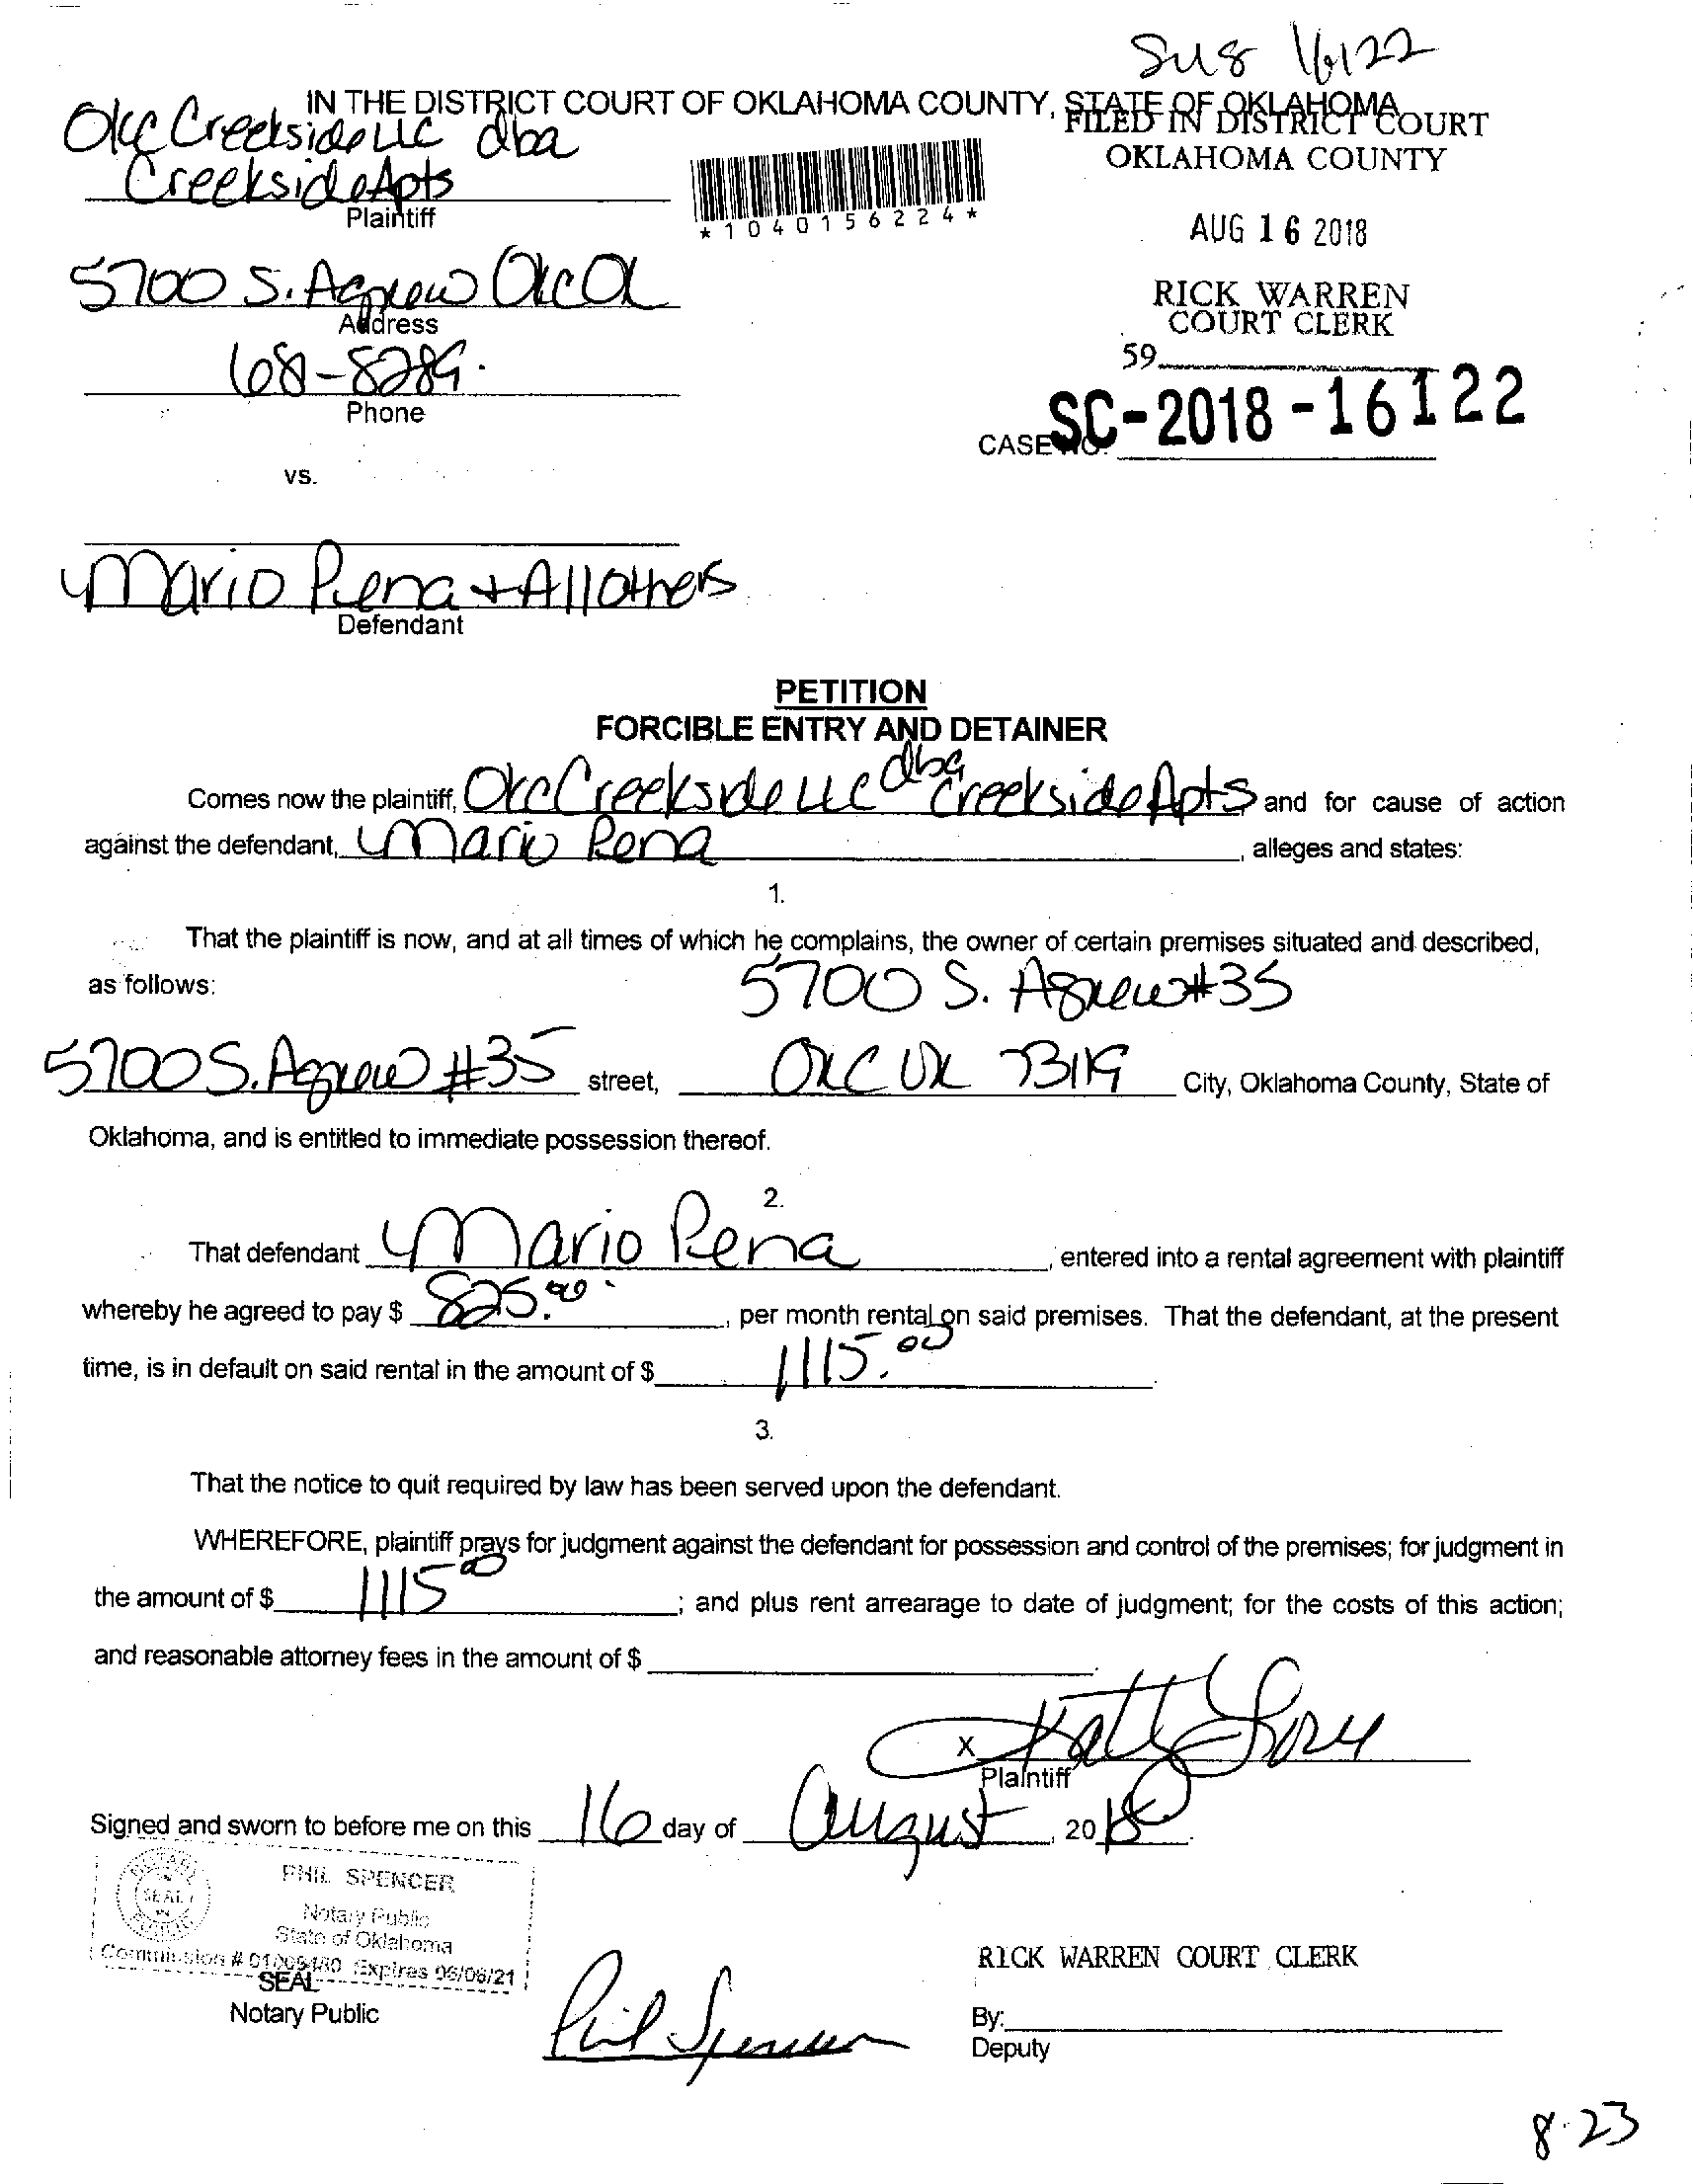 Su8 16122
IN THE DISTRICT COURT OF OKLAHOMA COUNTY, STATE OF OKLAHOMA
FILED IN DISTRICT COURT
OKLAHOMA COUNTY
Okc Creekside LLC dba
Creekside Apts
Plaintiff
*1040156224*
AUG 16 2018
5700 S. Agnew Okc Ok
Address
RICK WARREN
COURT CLERK
68-8289.
Phone
59
CASE NO. SC-2018-16122
vs.
Mario Pena + All others
Defendant
PETITION
FORCIBLE ENTRY AND DETAINER
Comes now the plaintiff, Okc Creekside LLC dba Creekside Apts and for cause of action
against the defendant, Mario Pena, alleges and states:
1.
That the plaintiff is now, and at all times of which he complains, the owner of certain premises situated and described,
as follows: 5700 S. Agnew #35
5700 S. Agnew #35 street, OKC OK 73119 City, Oklahoma County, State of
Oklahoma, and is entitled to immediate possession thereof.
2.
That defendant Mario Pena, entered into a rental agreement with plaintiff
whereby he agreed to pay $ 825.00, per month rental on said premises. That the defendant, at the present
time, is in default on said rental in the amount of $ 1115.00
3.
That the notice to quit required by law has been served upon the defendant.
WHEREFORE, plaintiff prays for judgment against the defendant for possession and control of the premises; for judgment in
the amount of $ 1115 00; and plus rent arrearage to date of judgment; for the costs of this action;
and reasonable attorney fees in the amount of $
X
Plaintiff
Signed and sworn to before me on this 16 day of August, 2018.
PHIL SPENCER
Notary Public
State of Oklahoma
Commission # Expires 06/06/21
SEAL
Notary Public
Phil Spencer
RICK WARREN COURT CLERK
By:
Deputy
8-23